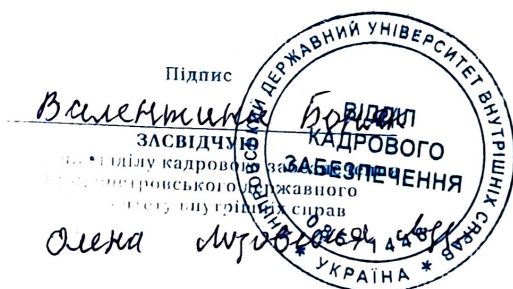 Підпис
Валентини
ЗАСВІДЧУЮ
відділу кадрового забезпечення
Дніпропетровського державного
університету внутрішніх справ
Олена
ДНІПРОПЕТРОВСЬКИЙ ДЕРЖАВНИЙ УНІВЕРСИТЕТ ВНУТРІШНІХ СПРАВ
ВІДДІЛ
КАДРОВОГО
ЗАБЕЗПЕЧЕННЯ
* УКРАЇНА *